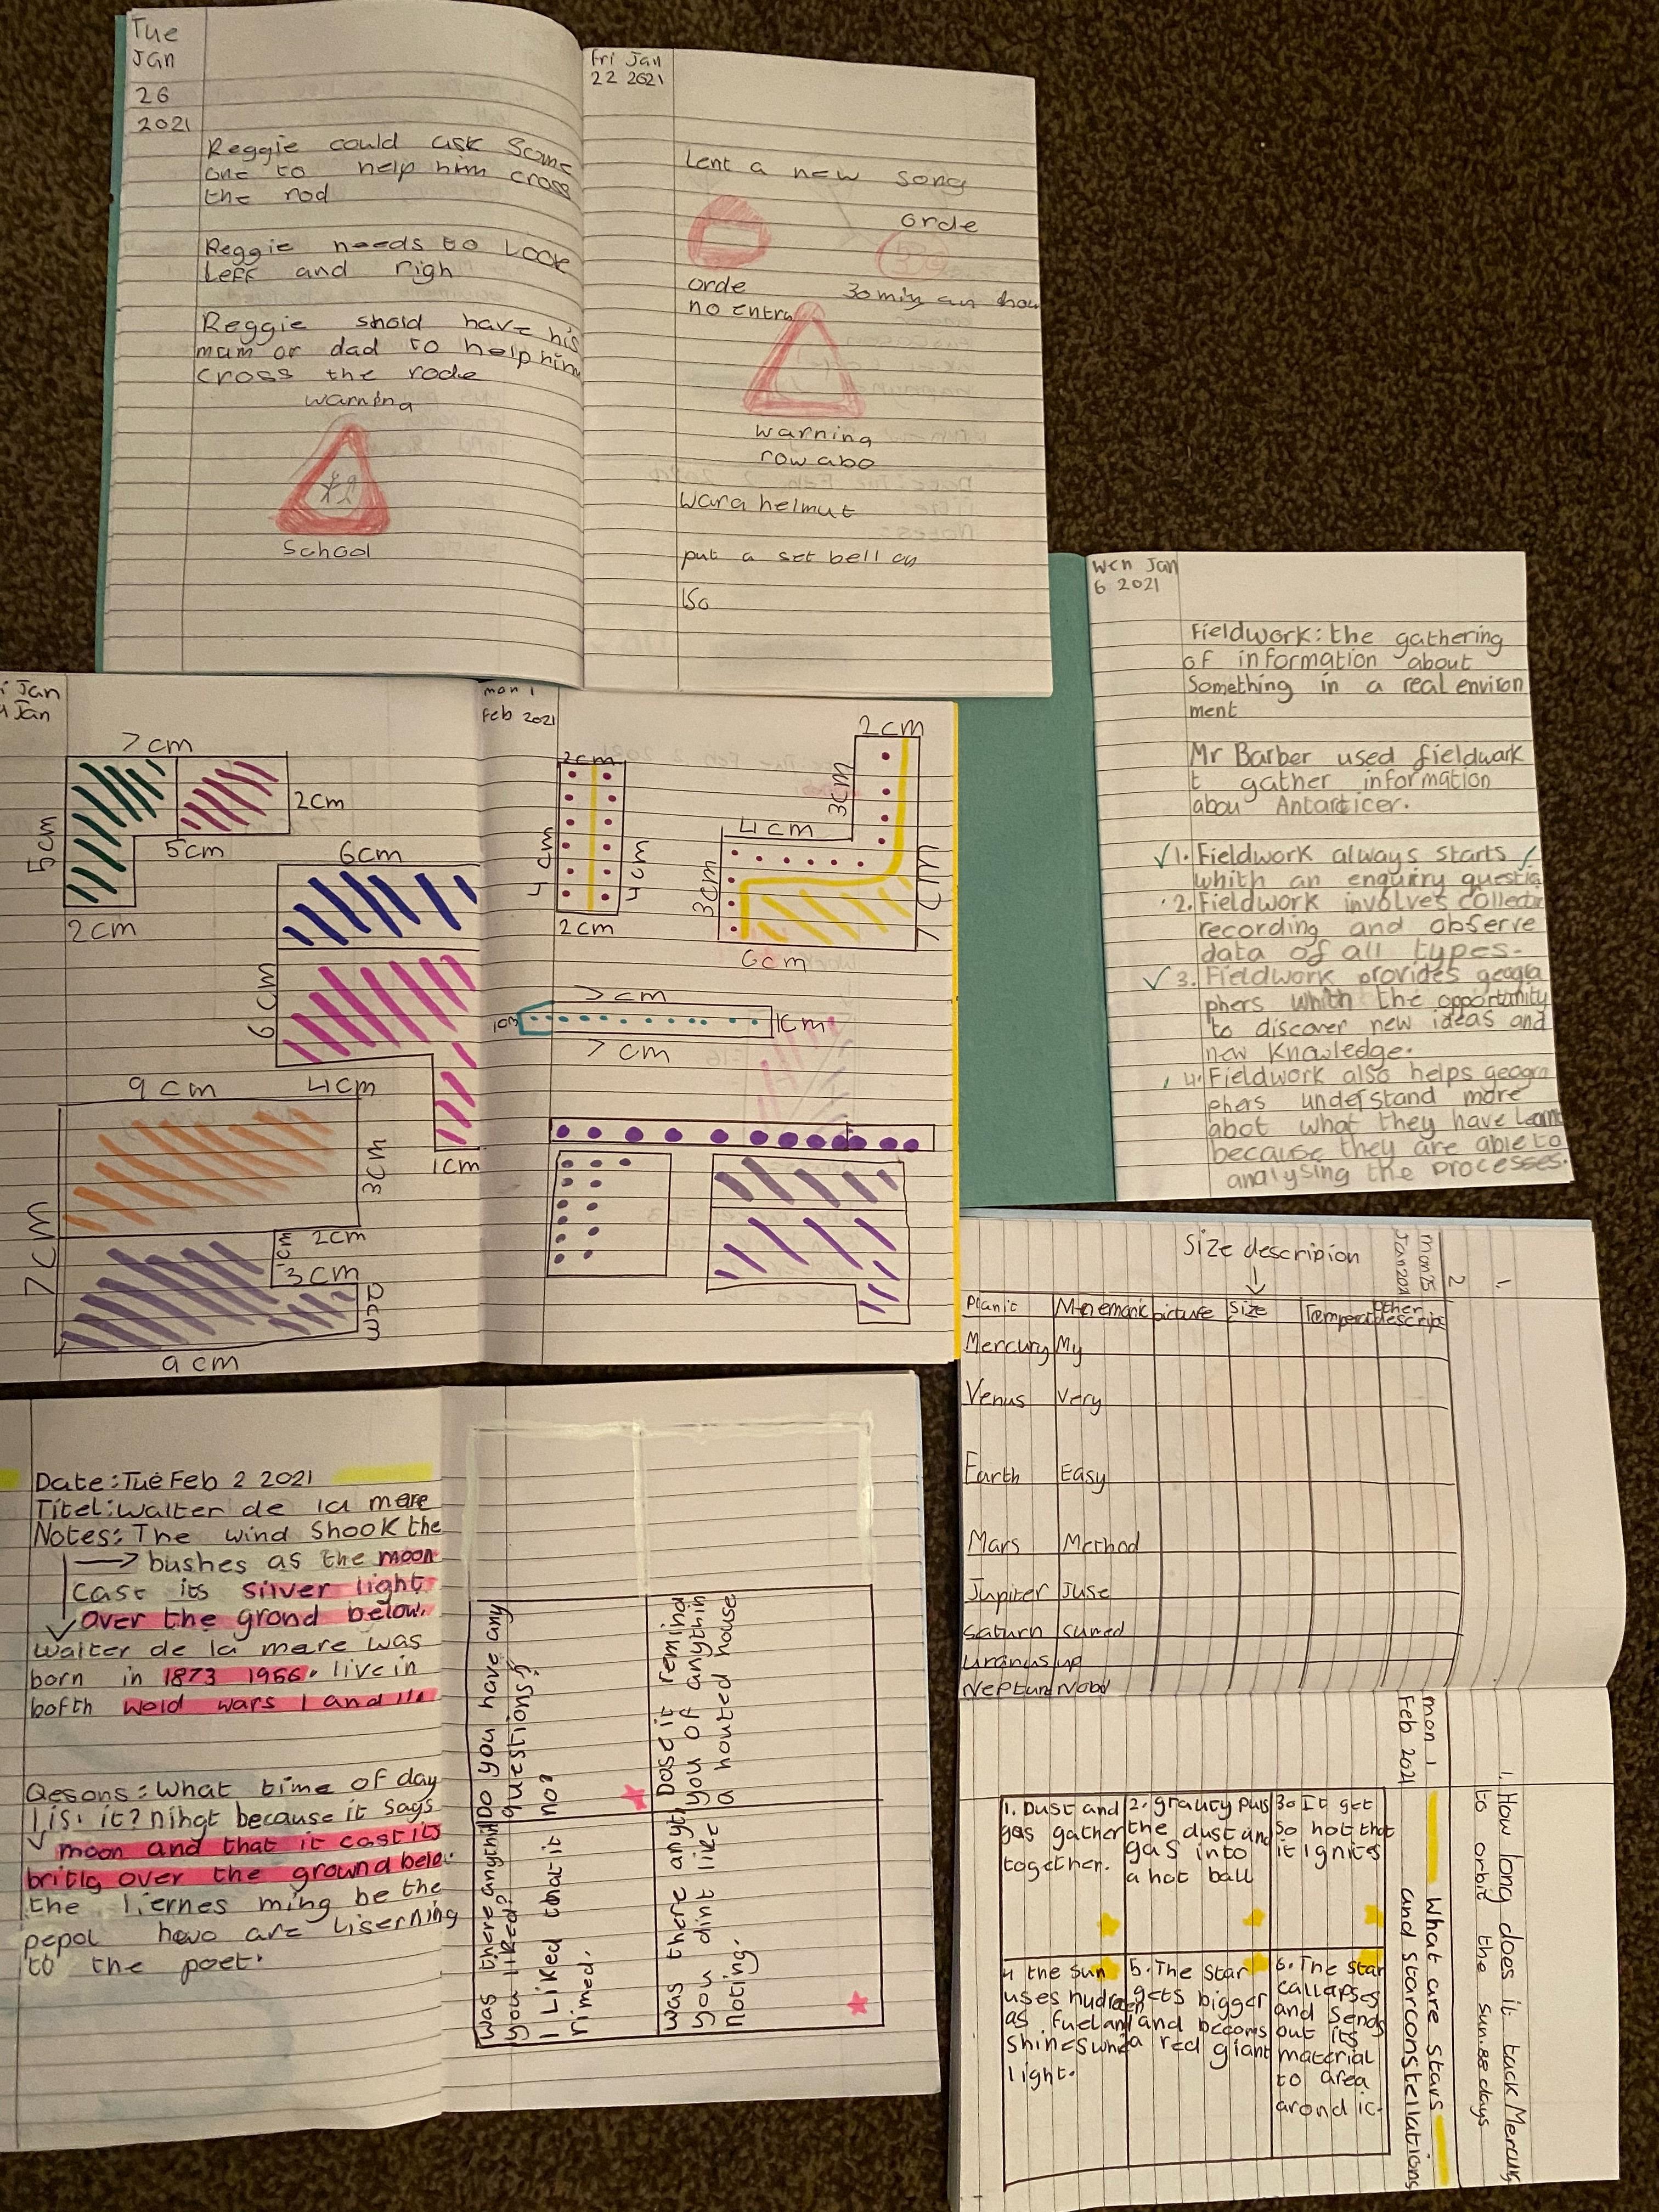 Tue
Jan
26
2021
Reggie could ask some
one to help him cross
the rod
Reggie needs to Look
Leff and righ
Reggie shold have his
mum or dad to help him
cross the rode
warning
School
Fri Jan
22 2021
Lent a new song
orde
orde
no entry
30 an hour
warning
row abo
wara helmut
put a set bell on
Wen Jan
6 2021
Fieldwork: the gathering
of information about
Something in a real environ
ment
Mr Barber used fieldwark
t gather information
abou Antarticer.
1. Fieldwork always starts
which an enquiry questio
2. Fieldwork involves collectin
recording and observe
data of all types.
3. Fieldwork provides geogra
phers whith the opportunity
to discover new ideas and
new Knowledge.
4. Fieldwork also helps geogra
phers understand more
abot what they have Learn
because they are able to
analysing the processes.
i Jan
Jan
7cm
2cm
5cm
5cm
2cm
6cm
6cm
1cm
9cm
4cm
3cm
7cm
1cm
2cm
3cm
2cm
9cm
mon 1
Feb 2021
2cm
4cm
4cm
2cm
2cm
3cm
4cm
3cm
7cm
6cm
7cm
1cm
1cm
7cm
Date: Tue Feb 2 2021
Titel: walter de la mare
Notes: The wind Shook the
→ bushes as the moon
cast its silver light
over the grond below.
Walter de la mare was
born in 1873 1956. live in
bofth wold wars 1 and 11.
Qesons: What time of day
is it? nihgt because it says
moon and that it cast its
britlg over the ground belo.
the liernes ming be the
pepol howo are liserning
to the poet.
Do you have any
questions?
no?
Dose it remind
you of anythin
a honted house
was there anythin
you liked?
I Liked that it
rimed.
was there anyth
you dint like
noting.
mon 25
Jan 2021
1.
2
Size description
Planit Mnemonic picture Size Temperat other descrips
Mercury My
Venus Very
Earth Easy
Mars Method
Jupiter Juse
Saturn sumed
Uranus up
Neptun
1. How long does it tack Mercury
to orbit the sun. 88 days
mon 1
Feb 2021
What are stars
and starconstellations
1. Dust and
gas gather
together.
2. gravity puls
the dust and
gas into
a hot ball
3. It get
so hot that
it ignites
4 the Sun
uses hudragen
as fuel and
shines
light.
5. The Star
gets bigger
and becoms
a red giant
6. The star
callapses
and sends
out its
material
to area
arond it.